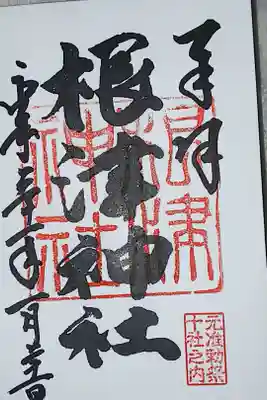 奉拝
根津神社
根津
神社
元准勅祭
十社之内